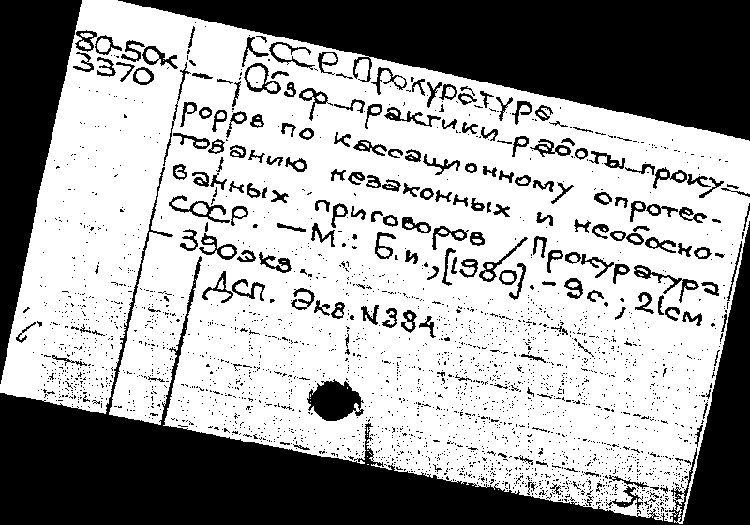 80-50к.
3370
СССР. Прокуратура.
Обзор практики работы проку-
роров по кассационному опротес-
тованию незаконных и необосно-
ванных приговоров / Прокуратура
СССР. — М.: Б.и., [1980]. - 9с.; 21см.
— 390экз.
Дсп. Экз. N 384.
3